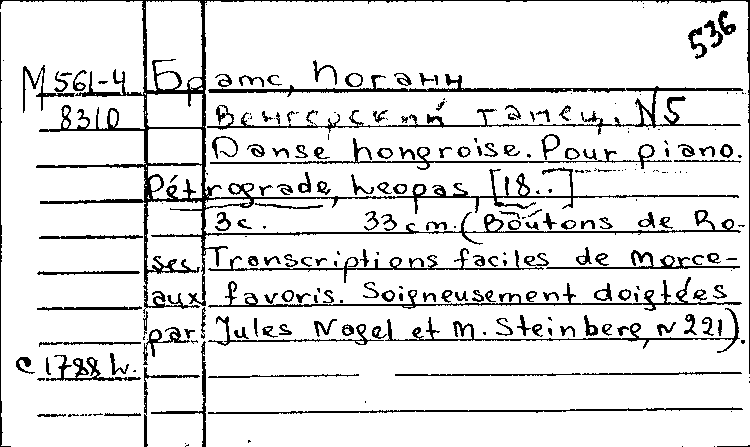 536
М 561-4 Брамс, Иоганн
8310 Венгерский танец, N5
Danse hongroise. Pour piano.
Pétrograde, Леопас, [18..]
3с. 33см. (Boutons de Ro-
ses. Transcriptions faciles de morce-
aux favoris. Soigneusement doigtées
par Jules Nagel et M. Steinberg, N 221).
с 1788 h.